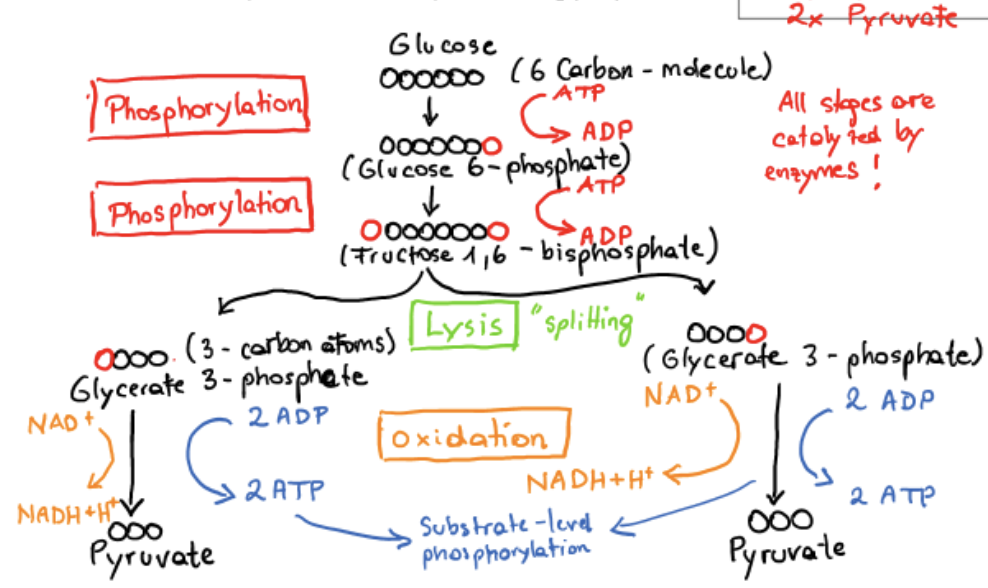 2x Pyruvate
Glucose
(6 Carbon - molecule)
Phosphorylation
ATP
ADP
All stages are
catalyzed by
enzymes!
(Glucose 6-phosphate)
Phosphorylation
ATP
ADP
(Fructose 1,6 - bisphosphate)
Lysis "splitting"
(3 - carbon atoms)
Glycerate 3 - phosphate
(Glycerate 3 - phosphate)
NAD+
2 ADP
oxidation
NAD+
2 ADP
NADH+H+
2 ATP
NADH+H+
2 ATP
Substrate-level
phosphorylation
Pyruvate
Pyruvate